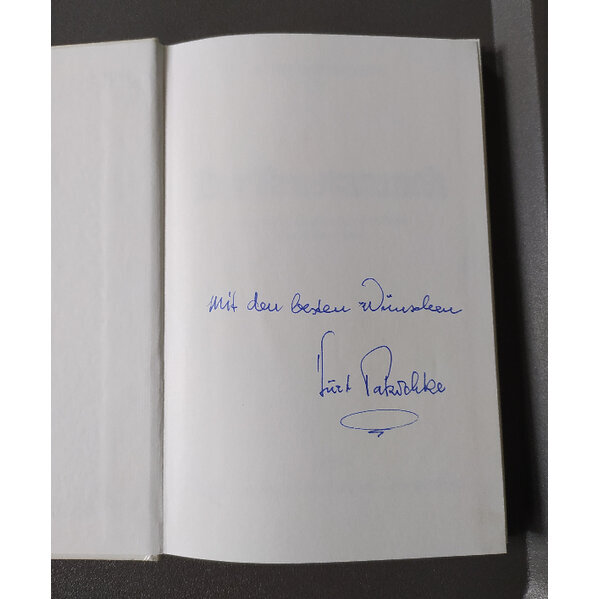 Mit den besten Wünschen
Kurt Patzschke